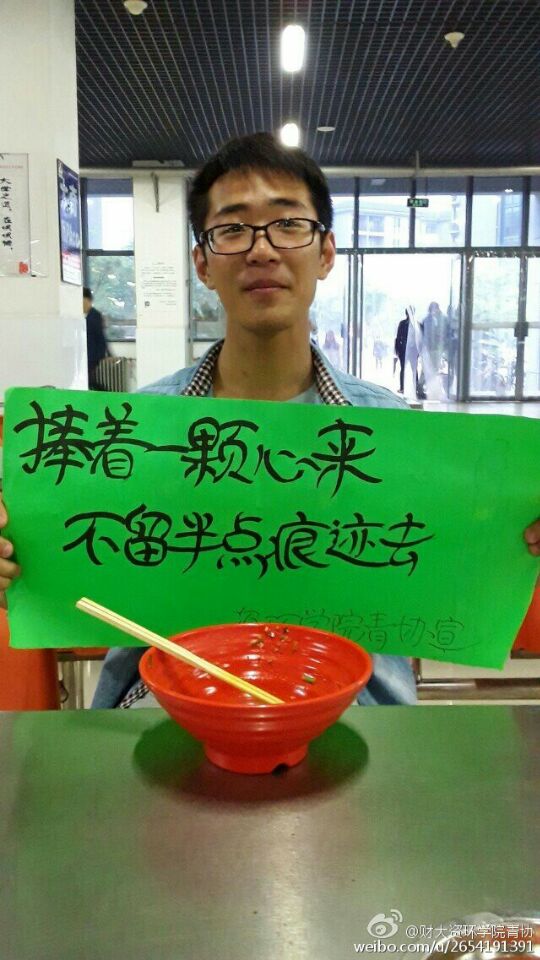 捧着一颗心来
不留半点痕迹去
资环学院青协宣
@财大资环学院青协
weibo.com/u/2654191391